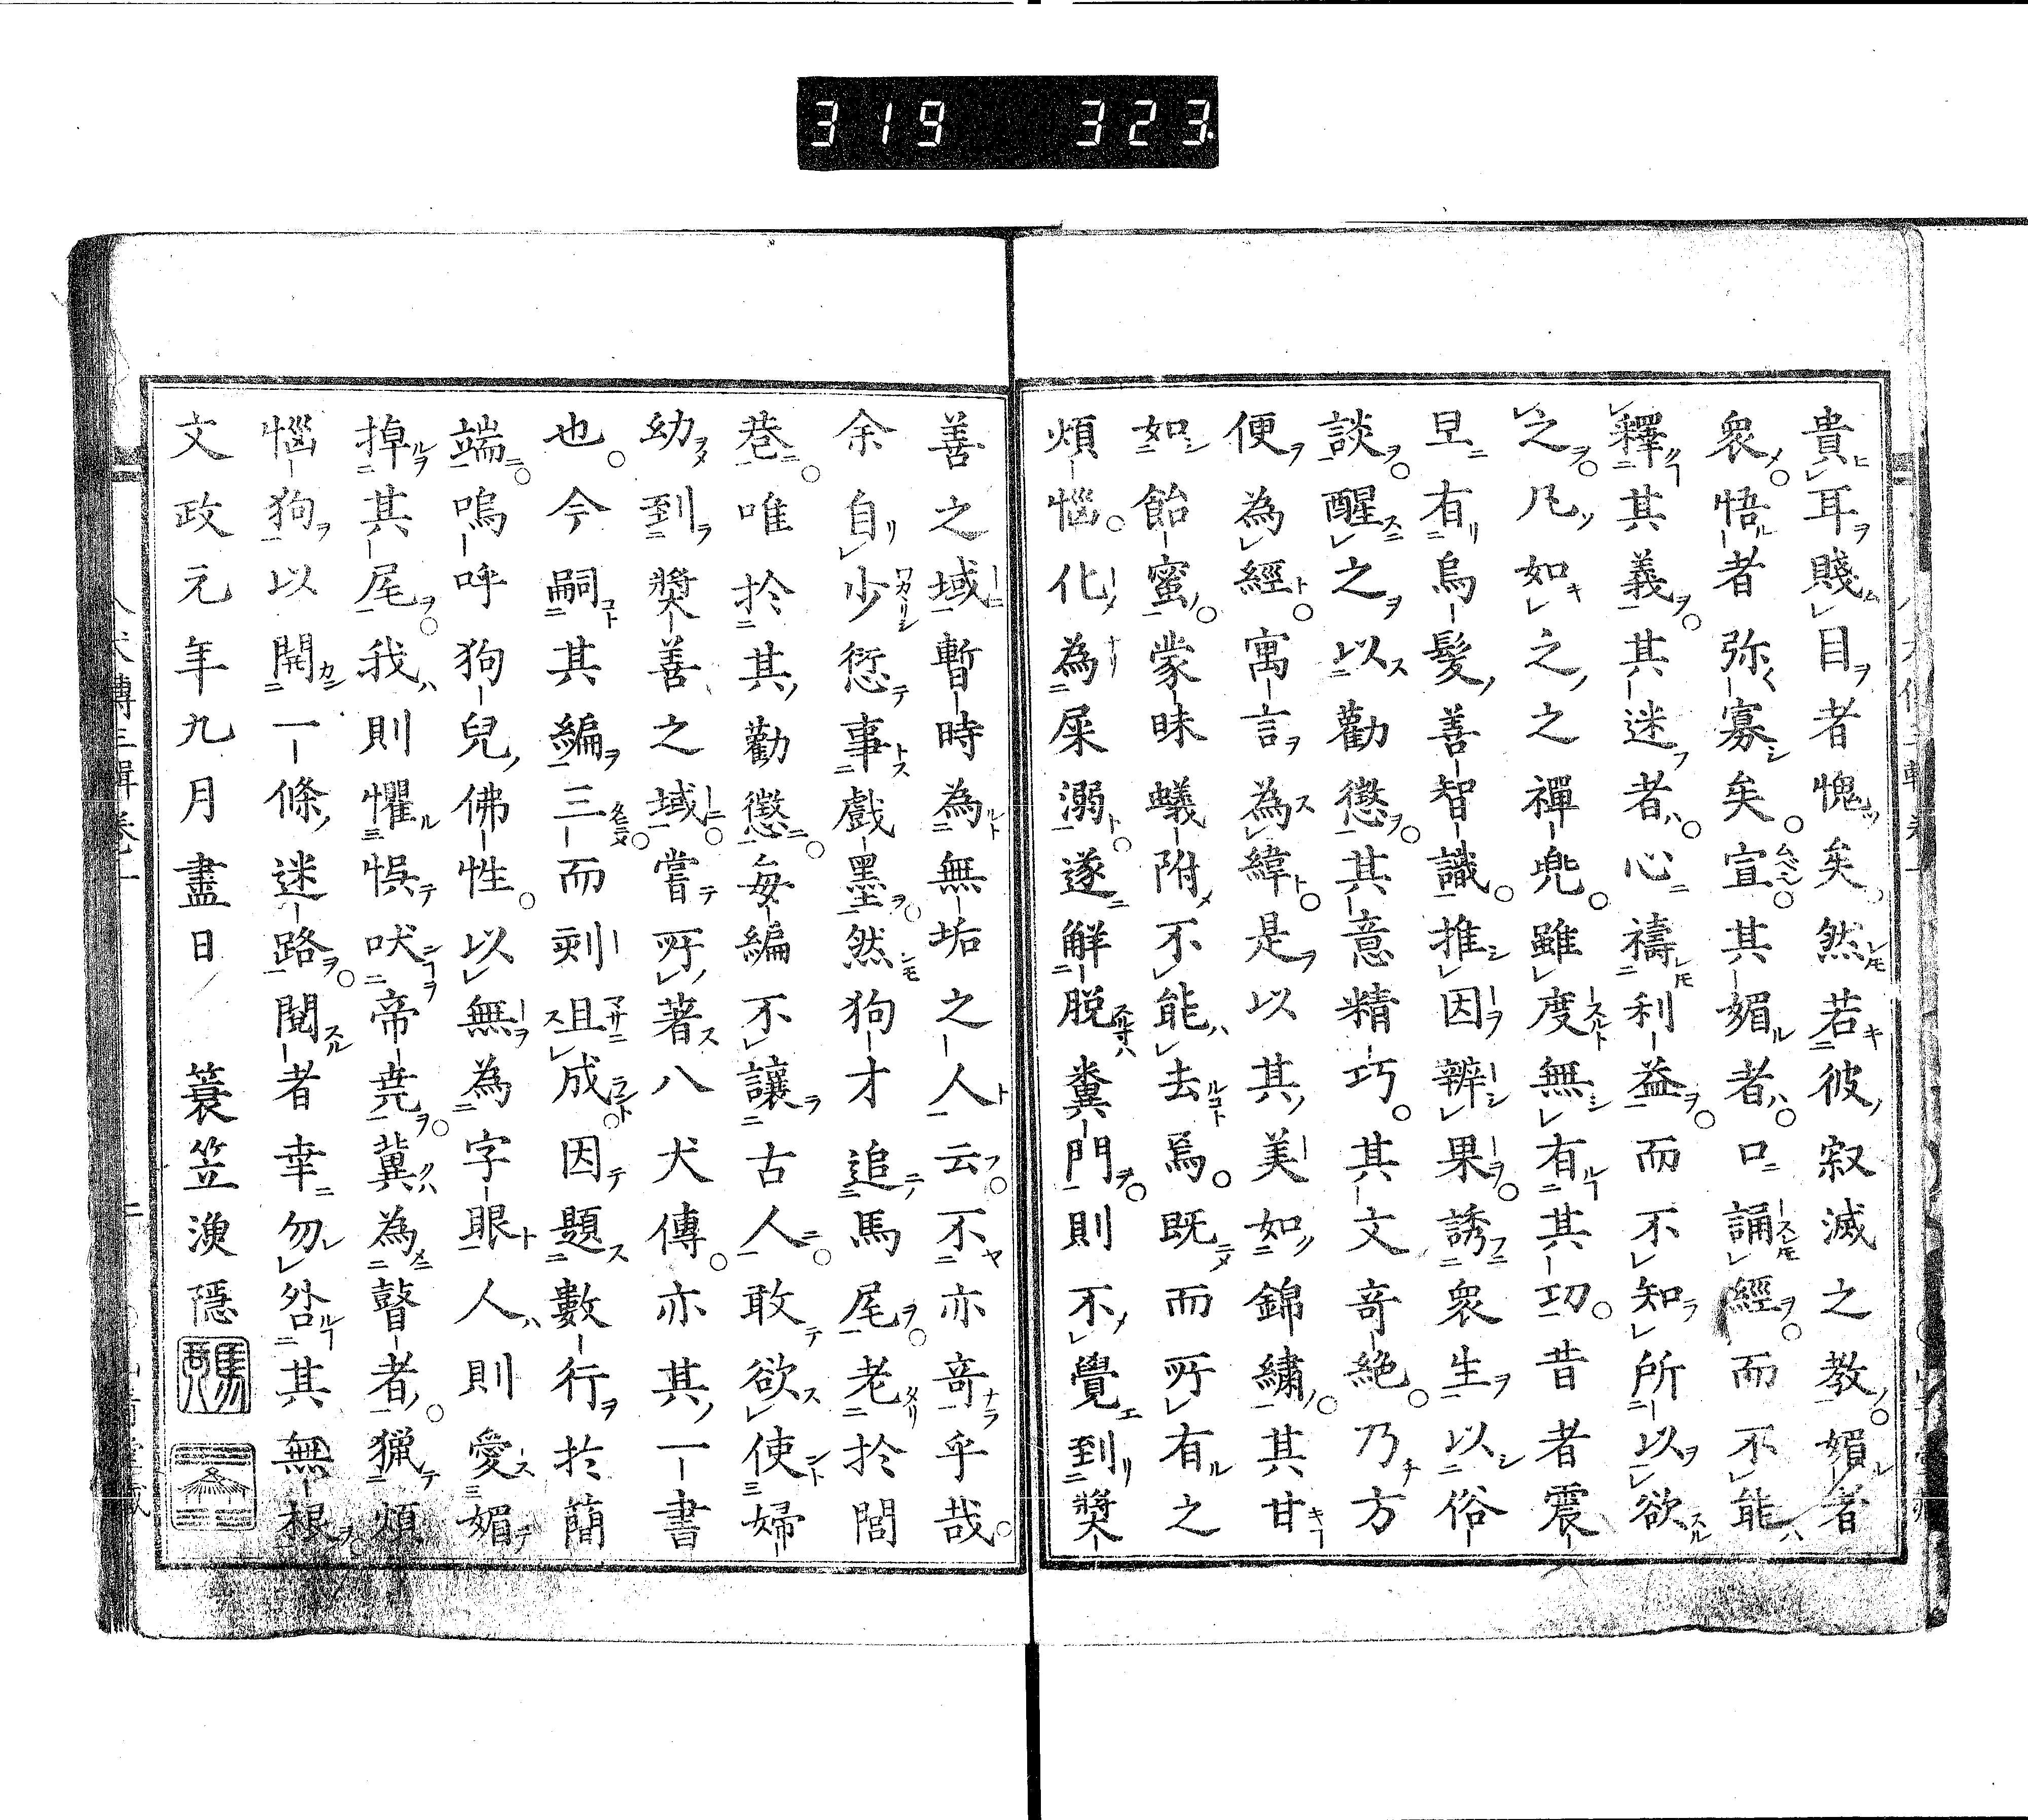 319 323
貴耳賤目者愧矣然若彼寂滅之教媚者
衆悟者弥寡矣宜其媚者口誦經而不能
釋其義其迷者心禱利益而不知所以欲
之凡如之之禪兜雖度無有其功昔者震
旦有烏髮善智識推因辨果誘衆生以俗
談醒之以勸懲其意精巧其文奇絶乃方
便為經寓言為緯是以其美如錦繍其甘
如飴蜜蒙昧蟻附不能去焉既而所有之
煩惱化為屎溺遂解脱糞門則不覺到奬
善之域暫時為無垢之人云不亦竒乎哉
余自少愆事戲墨然狗才追馬尾老於閭
巷唯於其勸懲毎編不讓古人敢欲使婦
幼到奬善之域嘗所著八犬傳亦其一書
也今嗣其編三而刻且成因題數行於簡
端嗚呼狗兒佛性以無為字眼人則愛媚
掉其尾我則懼悞吠帝尭冀為瞽者猟煩
惱狗以開一條迷路閲者幸勿咎其無根
文政元年九月盡日 蓑笠漁隱